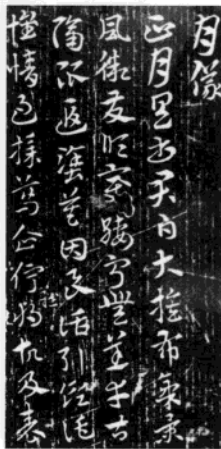 月儀
正月具書君白大蔟布氣景
風微發順變綏寧無恙幸甚
隔限遐塗莫因良話引領託
懷情過採葛企佇故及表